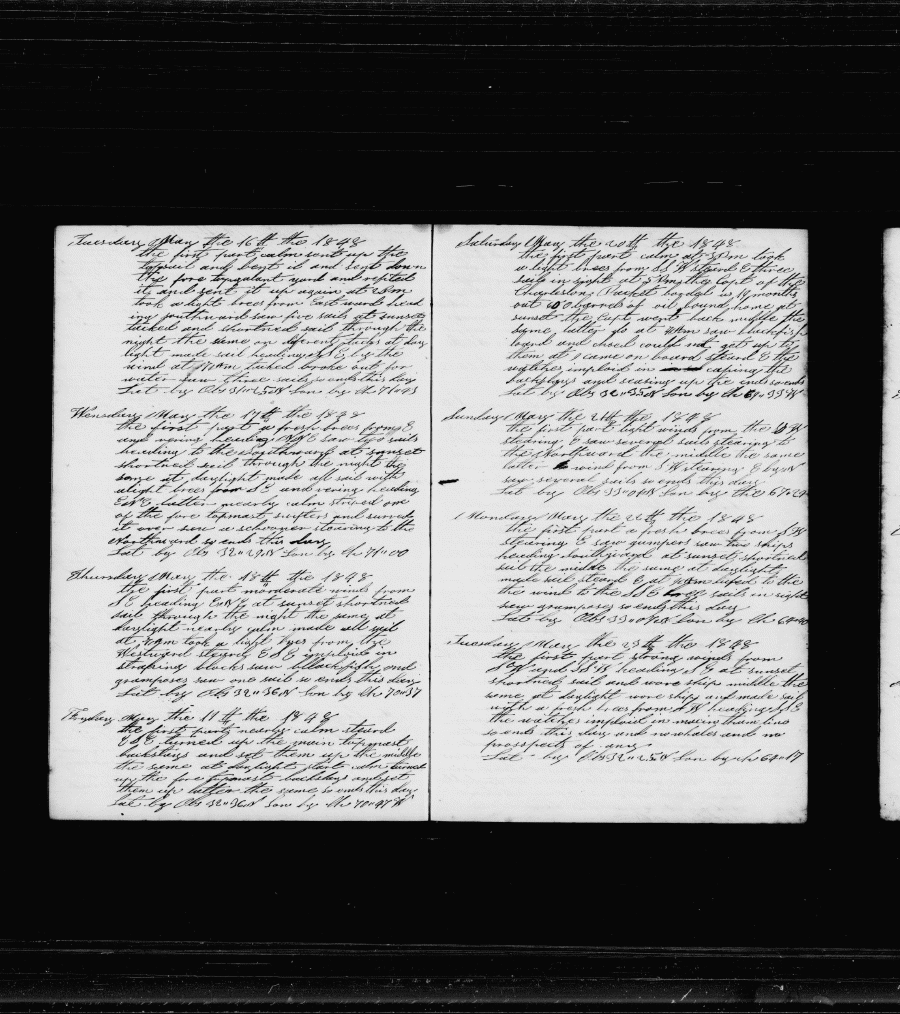 Tuesday May the 16th the 1848
the first part calm sent up the
topsail and bent it and sent down
the fore topgalant yard and
it and sent it up again at
took a light brees from East ward head
ing southward saw five sails at sunset
tacked and shortned sail through the
night the same on diferent tacks at day
light made sail heading by the
wind at tacked broke out for
water saw three sails so ends this day
Lat by Obs Lon by ch 71"43
Wensday May the 17th the 1848
the first part a fresh brees from E
and vering heading saw two sails
heading to the Southward at sunset
shortned sail through the night the
same at daylight made all sail with
alight brees from SE and vering heading
ENE latter nearly calm strived one
of the fore topmast swifters and
it over saw a schooner steering to the
Northward so ends this day
Lat by Obs 32"29N Lon by ch 71"00
Thursday May the 18th the 1848
the first part morderate winds from
SE heading at sunset shortned
sail through the night the same at
daylight nearly calm made all sail
at took a light brees from the
Westward steered ESE imploid in
straping blocks saw blackfish and
gramposes saw one sail so ends this day
Lat by Obs 32"36N Lon by ch 70"57
Fryday May the 11th the 1848
the first part nearly calm steard
ESE turned up the main topmast
backstays and set them up the middle
the same at daylight start calm turned
up the fore topmast backstays and set
them up latter the same so ends this day
Lat by Obs 32"36N Lon by ch 70"47W
Saturday May the 20th the 1848
the first part calm at took
a light brees from SSW steard E three
sails in sight at the Capt of the
Charleston Packet boarded us 14 months
out barrels of oil bound home at
sunset the Capt went back middle the
same latter at saw blackfish
loard and chced could not get up to
them at came on board steard E the
watches imploid in caping the
backstays and seasing up the ends so ends
Lat by Obs 32"55N Lon by ch
Sunday May the 21th the 1848
the first part light winds from the SW
steering E saw several sails steering to
the Northward the middle the same
latter wind from SW steering E by N
saw several sails so ends this day
Lat by Obs Lon by the
Monday May the the 1848
the first part a fresh brees from SW
steering E saw gumpers saw two ships
heading at sunset shortned
sail the midde the same at daylight
made sail steard E at lufed to the
the wind to the SSE sails in sight
saw gramposes so ends this day
Lat by Obs Lon by Ch
Tuesday May the 23th the 1848
the first part strong winds from
and heading at sunset
shortned sail and wore ship middle the
same at daylight wore ship and made sail
with a fresh brees from heading
the watches imploid in making them line
so ends this day and no whales and no
prosspects of any
Lat by Obs 32"25N Lon by ch 64"17